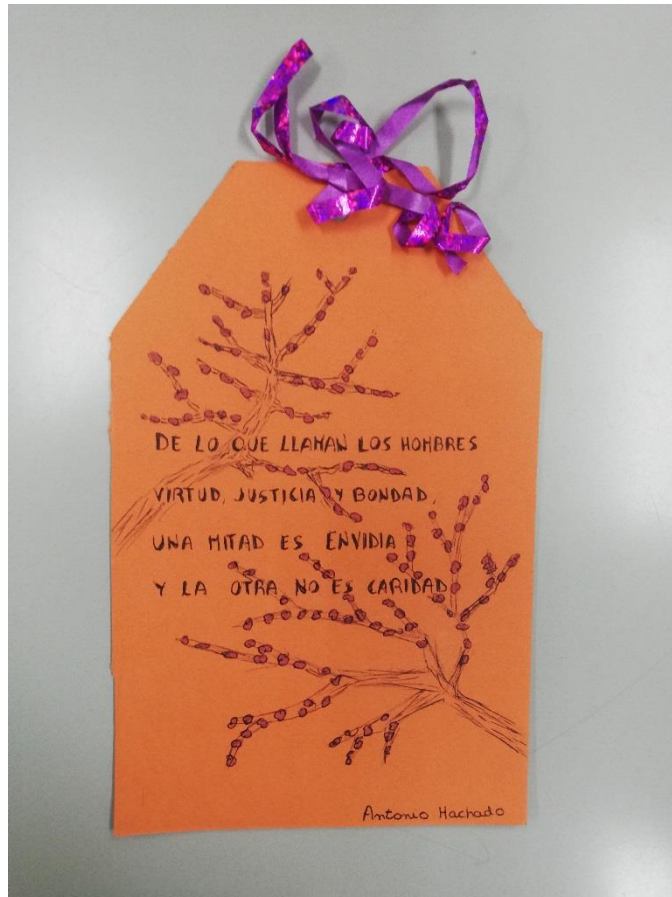 DE LO QUE LLAMAN LOS HOMBRES
VIRTUD, JUSTICIA Y BONDAD,
UNA MITAD ES ENVIDIA
Y LA OTRA NO ES CARIDAD
Antonio Machado